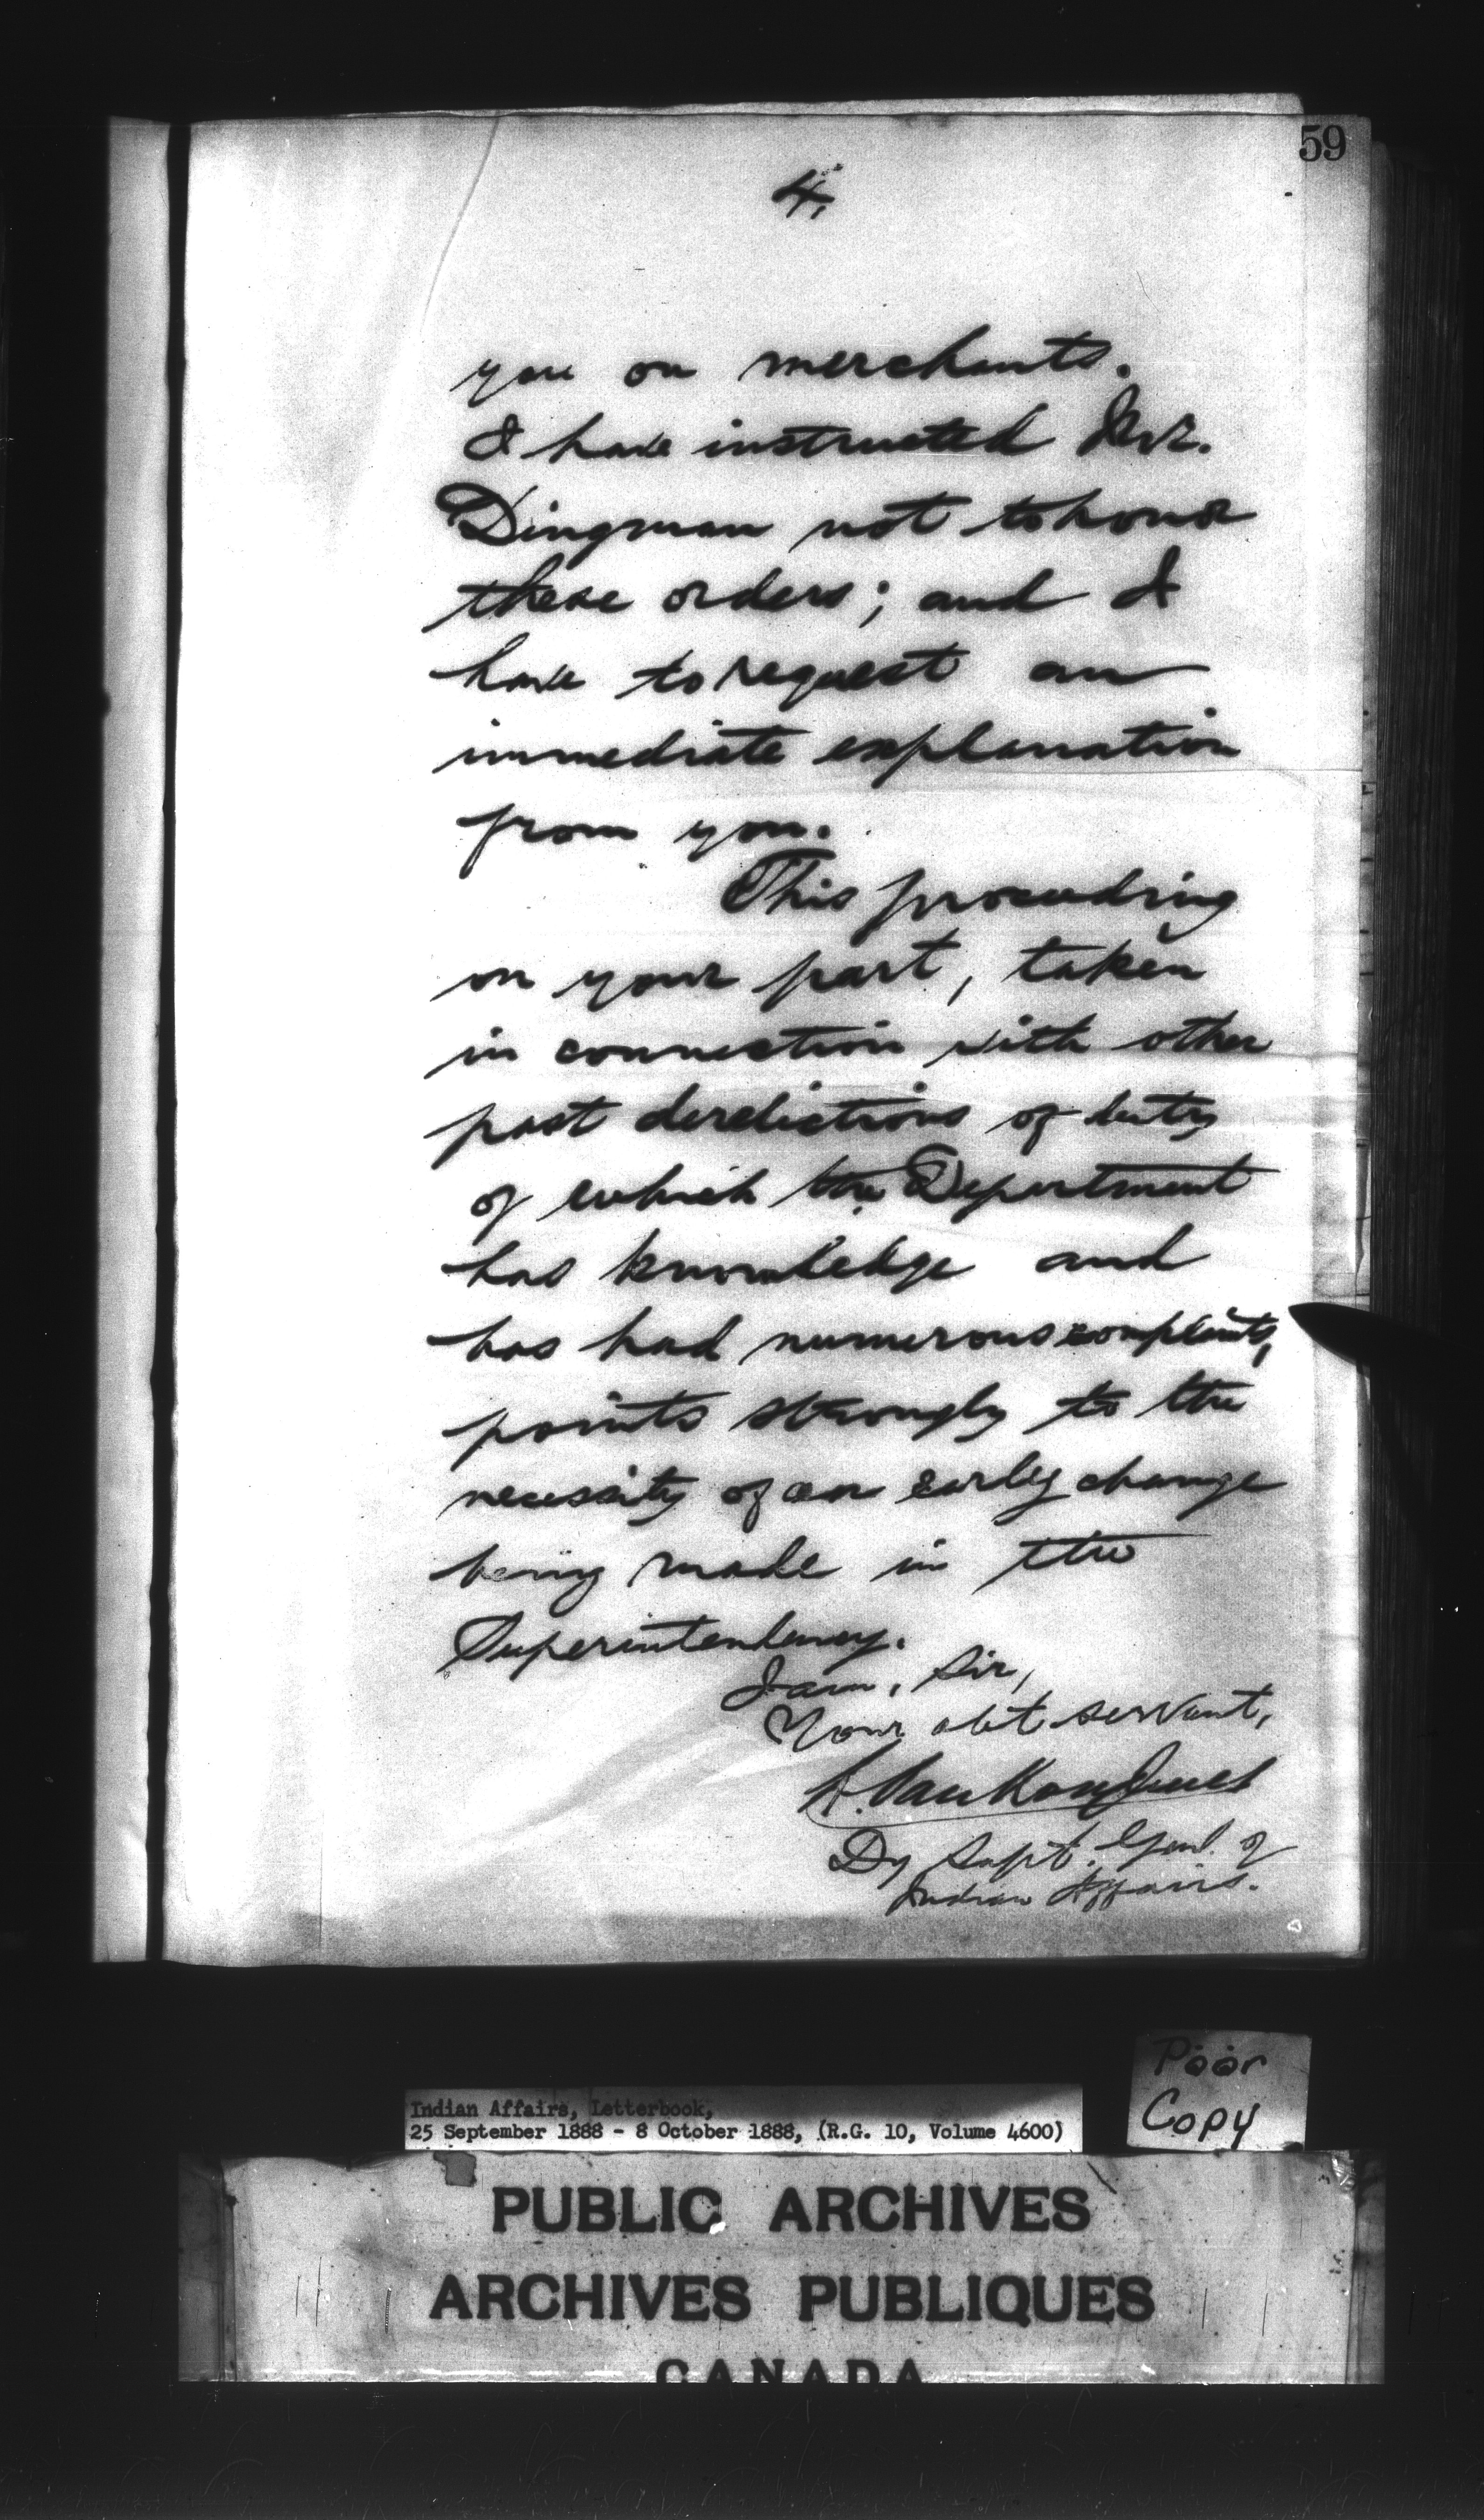 59
4.
you on merchants.
I have instructed Mr.
Dingman not to honor
these orders; and I
have to request an
immediate explanation
from you.
This proceeding
on your part, taken
in connection with other
past derelictions of duty
of which the Department
has knowledge and
has had numerous complaints,
points strongly to the
necessity of an early change
being made in the
Superintendency.
I am, Sir,
Your obt servant,
L. VanKoughnet
Dy Supt. Genl. of
Indian Affairs.
Poor
Copy
Indian Affairs, Letterbook,
25 September 1888 - 8 October 1888, (R.G. 10, Volume 4600)
PUBLIC ARCHIVES
ARCHIVES PUBLIQUES
CANADA